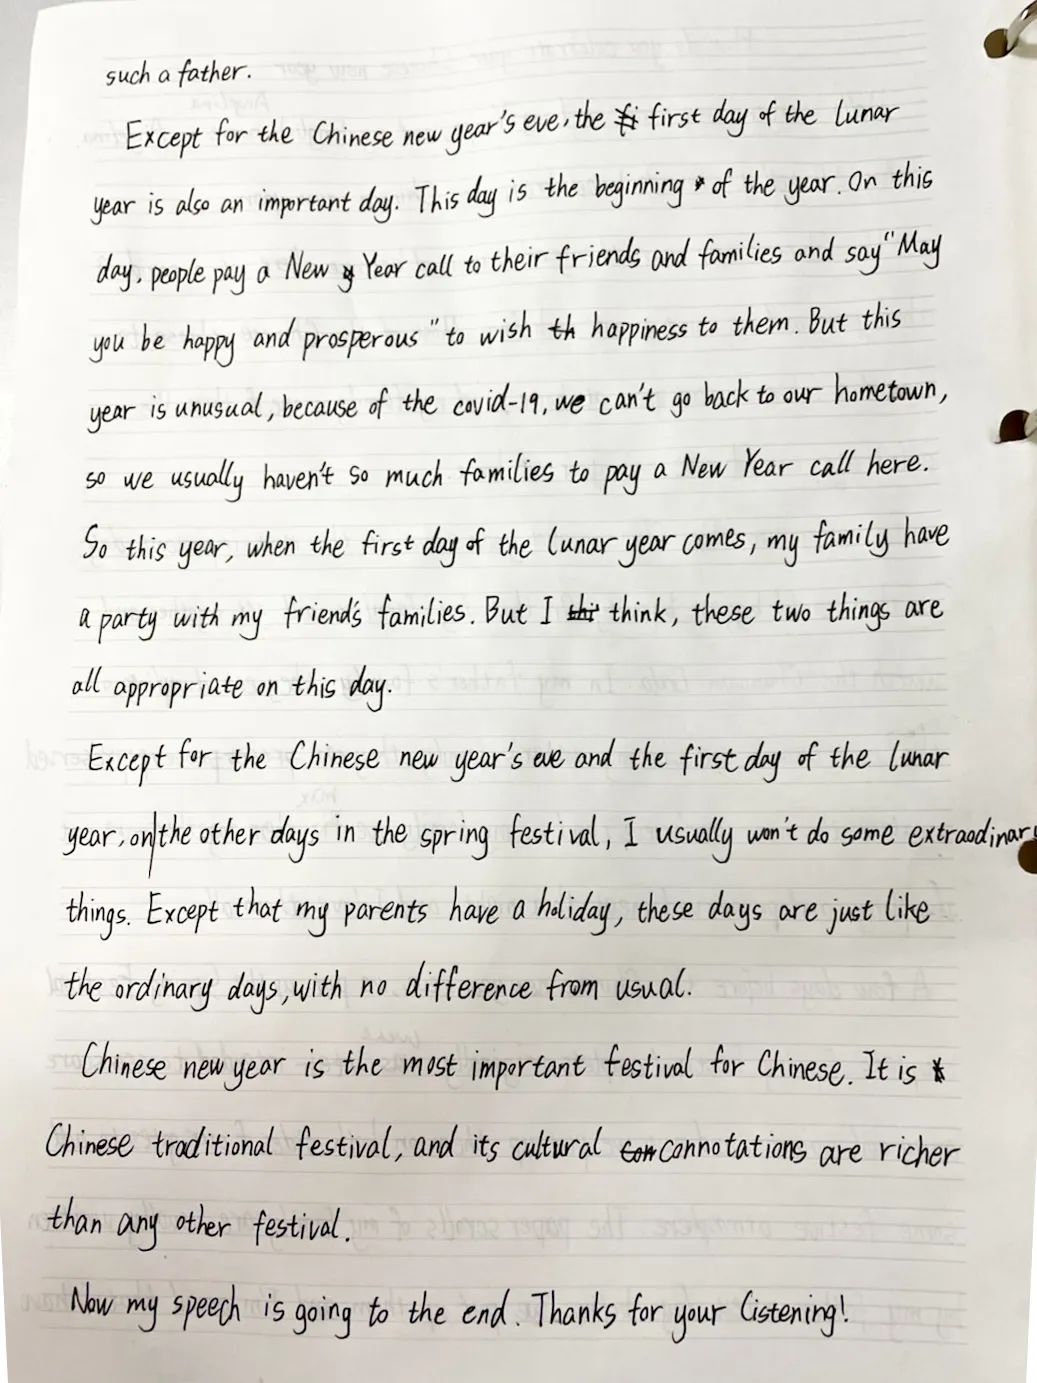 such a father.
Except for the Chinese new year's eve, the first day of the lunar
year is also an important day. This day is the beginning of the year. On this
day, people pay a New Year call to their friends and families and say "May
you be happy and prosperous" to wish happiness to them. But this
year is unusual, because of the covid-19, we can't go back to our hometown,
so we usually haven't so much families to pay a New Year call here.
So this year, when the first day of the lunar year comes, my family have
a party with my friend's families. But I think, these two things are
all appropriate on this day.
Except for the Chinese new year's eve and the first day of the lunar
year, on the other days in the spring festival, I usually won't do some extraodinary
things. Except that my parents have a holiday, these days are just like
the ordinary days, with no difference from usual.
Chinese new year is the most important festival for Chinese. It is
Chinese traditional festival, and its cultural connotations are richer
than any other festival.
Now my speech is going to the end. Thanks for your listening!